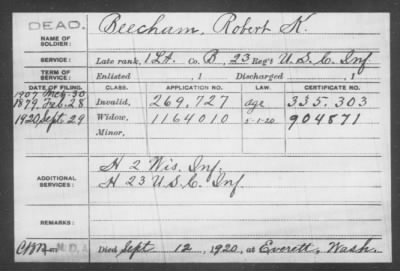 DEAD.
NAME OF SOLDIER: Beecham, Robert K.
SERVICE: Late rank, 1 Lt. Co. B, 23 Reg't U.S.C. Inf.
TERM OF SERVICE: Enlisted , 1 Discharged , 1
DATE OF FILING. CLASS. APPLICATION NO. LAW. CERTIFICATE NO.
1907
1879 Feb. 28 Invalid, 269,727 age 335.303
1920 Sept 29 Widow, 1164010 5-1-20 904871
Minor,
ADDITIONAL SERVICES: H 2 Wis. Inf.
H 23 U.S.C. Inf
REMARKS:
Died Sept 12, 1920, at Everett, Wash.